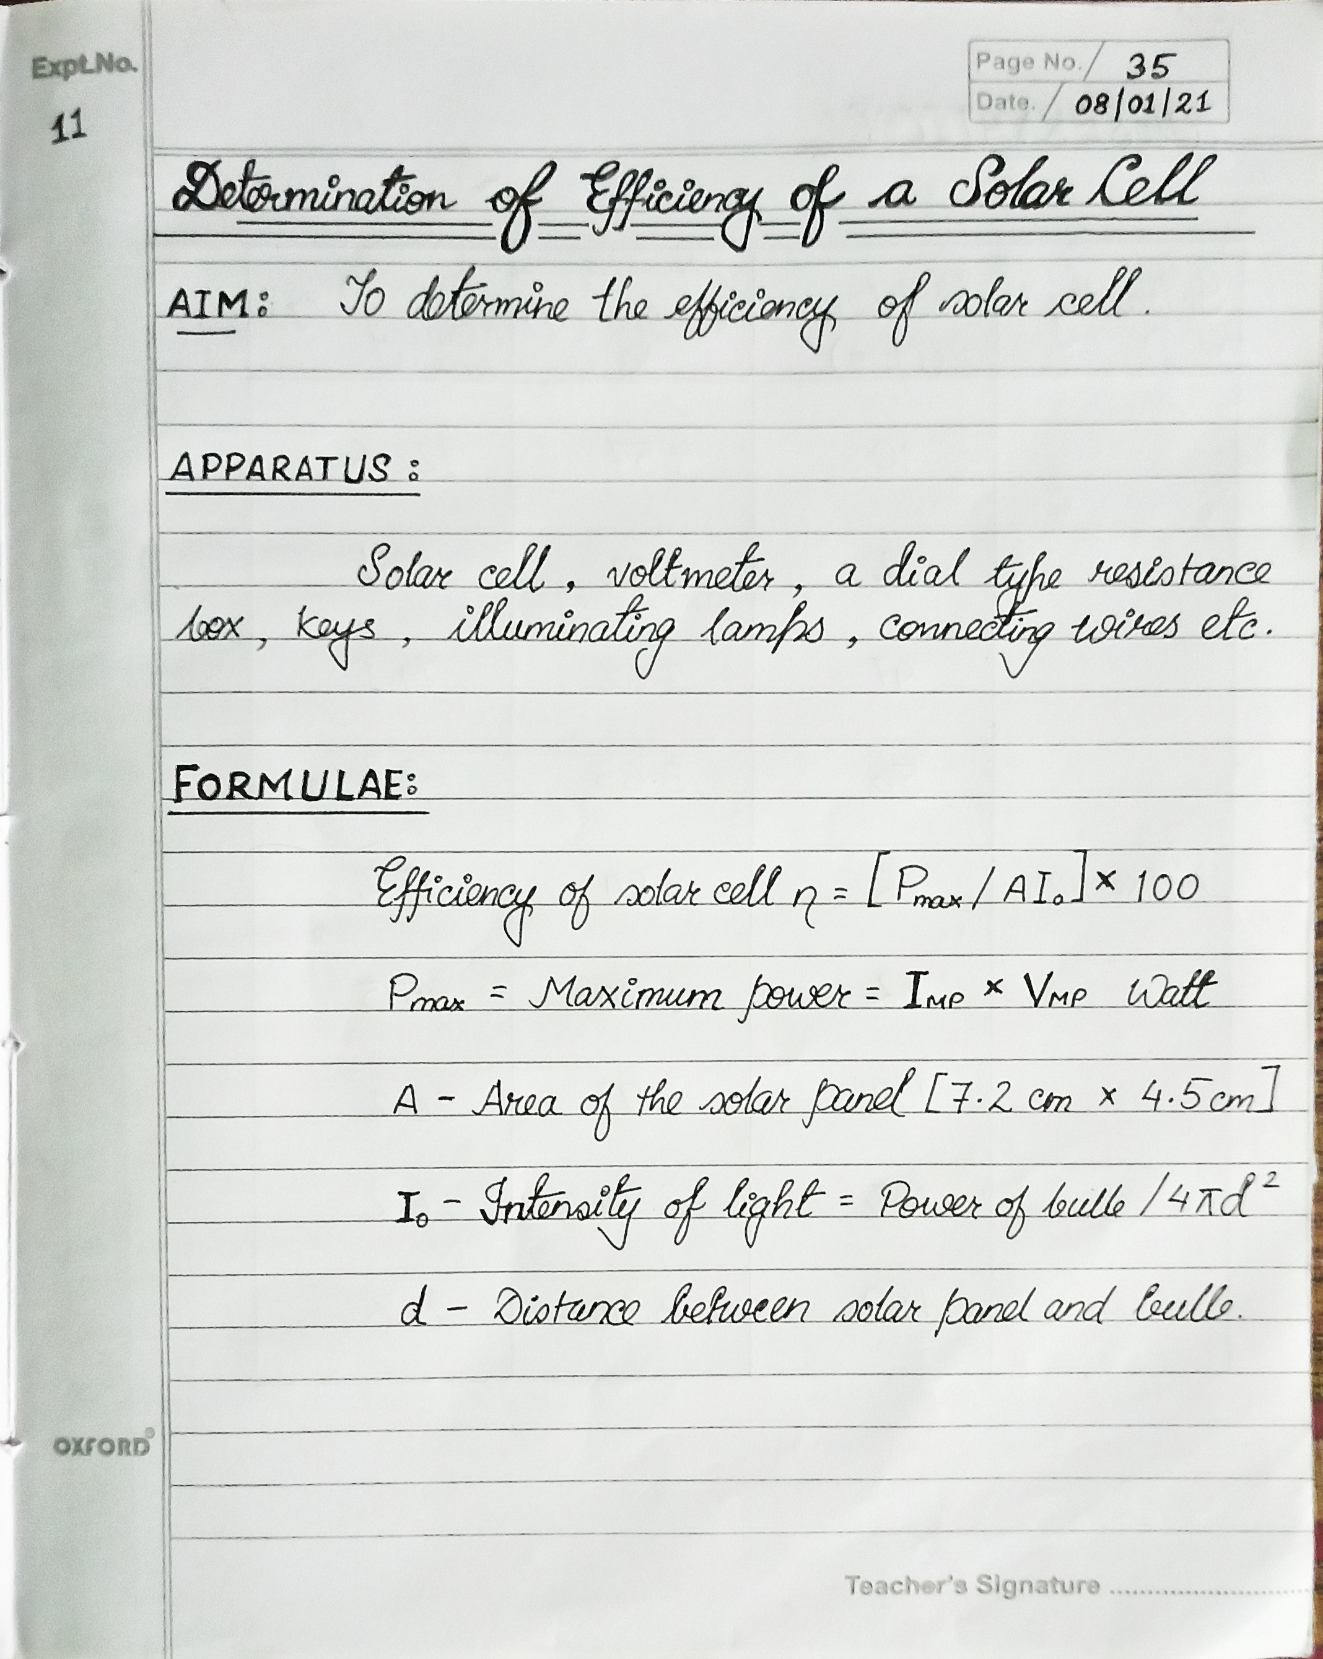 Expt.No.
11
Page No. 35
Date. 08/01/21
Determination of Efficiency of a Solar Cell
AIM: To determine the efficiency of solar cell.
APPARATUS:
Solar cell, voltmeter, a dial type resistance
box, keys, illuminating lamps, connecting wires etc.
FORMULAE:
Efficiency of solar cell η = [Pmax / AI₀] × 100
Pmax = Maximum power = IMP × VMP Watt
A - Area of the solar panel [7.2 cm × 4.5 cm]
I₀ - Intensity of light = Power of bulb / 4πd²
d - Distance between solar panel and bulb.
OXFORD®
Teacher's Signature ........................